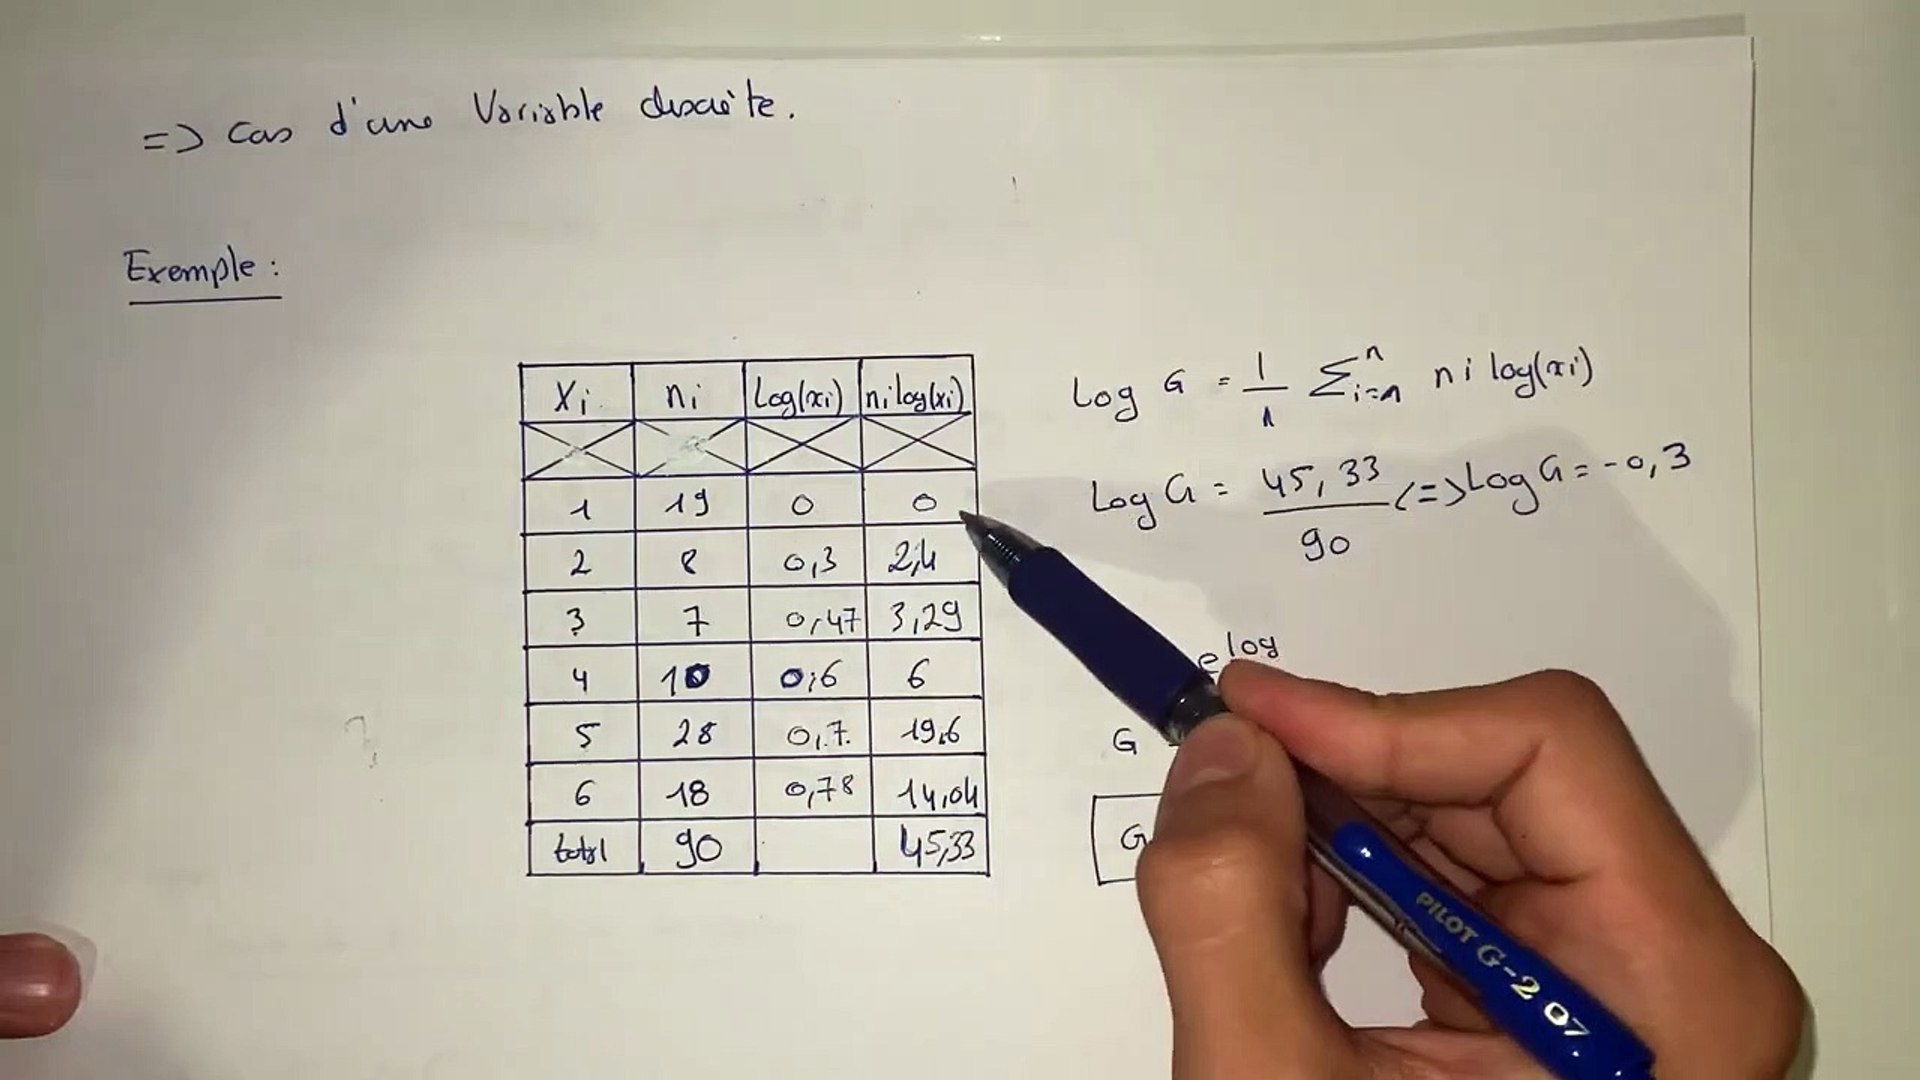 => Cas d'une Variable discrète.
Exemple :
Xi ni Log(xi) ni log(xi)
1 19 0 0
2 8 0,3 2,4
3 7 0,47 3,29
4 10 0,6 6
5 28 0,7. 19,6
6 18 0,78 14,04
total 90 45,33
Log G = 1/n Σ i=n n ni log(xi)
Log G = 45,33/90 <=> Log G = -0,3
e log
G
G
PILOT G-2 07